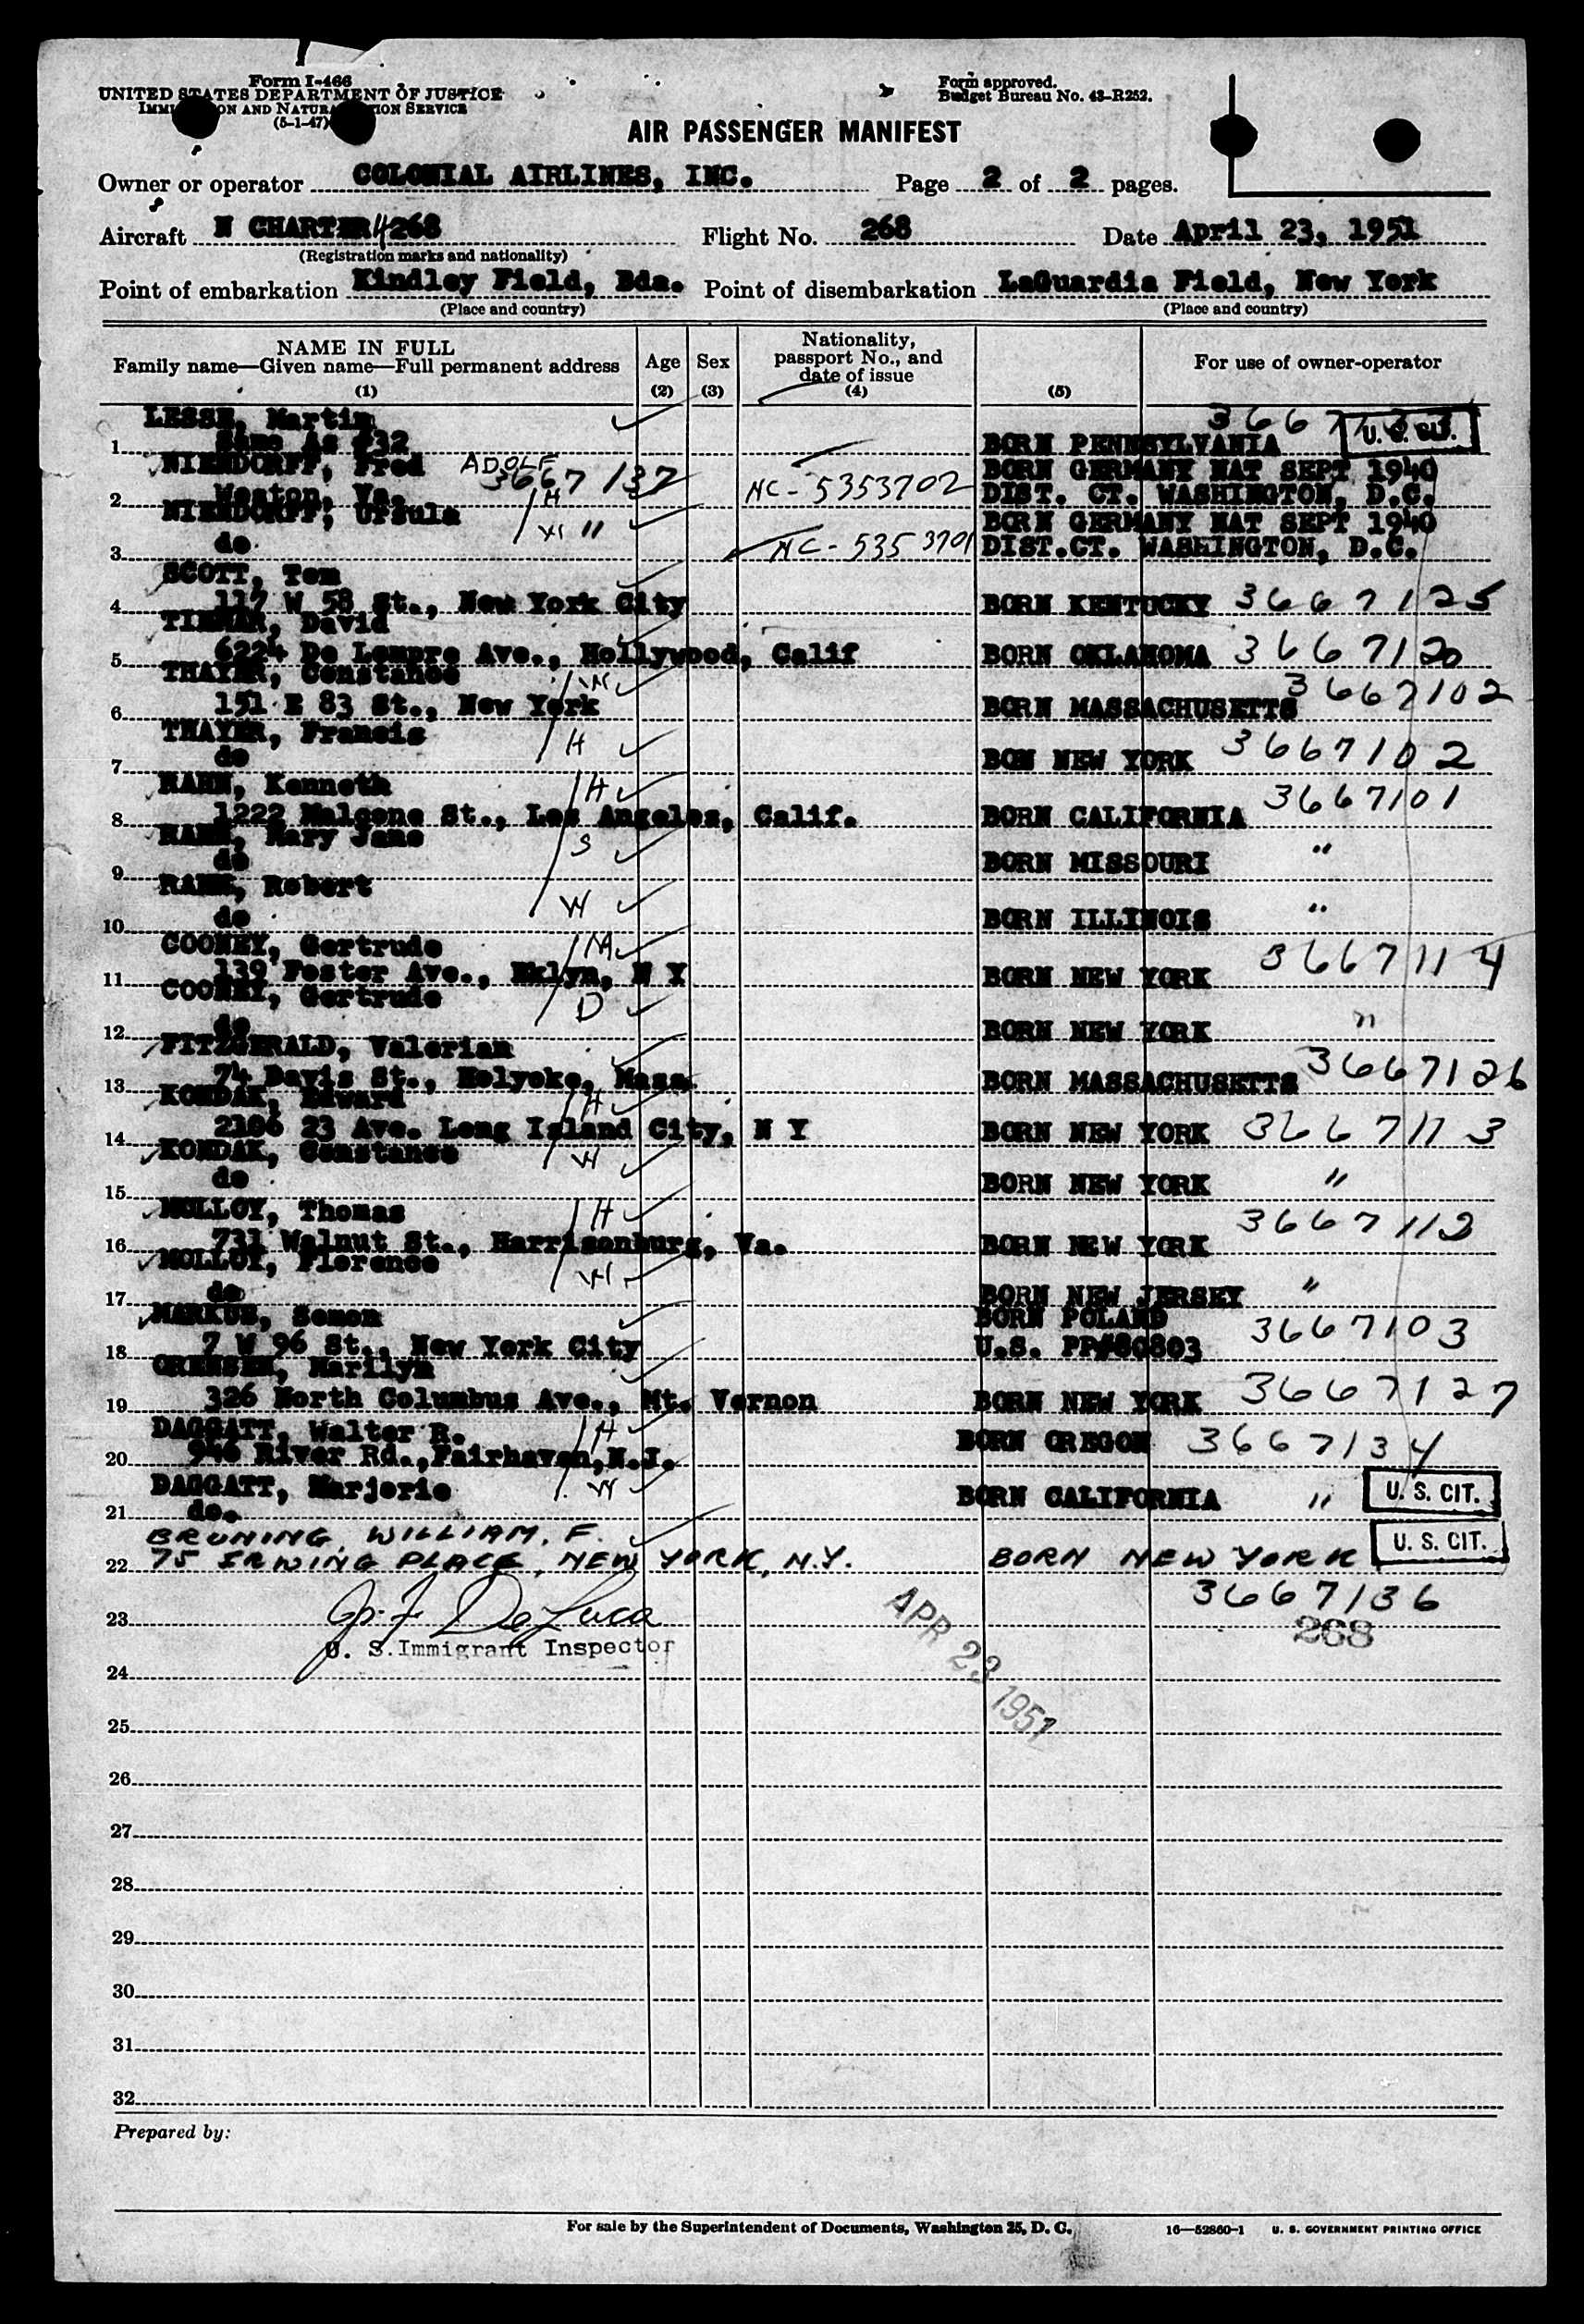 Form I-466
UNITED STATES DEPARTMENT OF JUSTICE
IMMIGRATION AND NATURALIZATION SERVICE
(5-1-47)
Form approved.
Budget Bureau No. 43-R252.
AIR PASSENGER MANIFEST
Owner or operator COLONIAL AIRLINES, INC. Page 2 of 2 pages.
Aircraft N CHARTER 4268 Flight No. 268 Date April 23, 1951
(Registration marks and nationality)
Point of embarkation Kindley Field, Bda. Point of disembarkation LaGuardia Field, New York
(Place and country) (Place and country)
NAME IN FULL
Family name—Given name—Full permanent address
(1)
Age
(2)
Sex
(3)
Nationality, passport No., and date of issue
(4)
(5)
For use of owner-operator
LESSE, Martin
1 Same As #32 BORN PENNSYLVANIA U. S. CIT.
NIENDORFF, Fred ADOLF 3667137 BORN GERMANY NAT SEPT 1940
2 Weston, Va. H NC-5353702 DIST. CT. WASHINGTON, D.C.
NIENDORFF, Ursula W " BORN GERMANY NAT SEPT 1940
3 do NC-5353701 DIST.CT. WASHINGTON, D.C.
SCOTT, Tom
4 117 W 58 St., New York City BORN KENTUCKY 3667125
David
5 6224 De Longpre Ave., Hollywood, Calif BORN OKLAHOMA 3667120
THAYER, Constance W
6 151 E 83 St., New York BORN MASSACHUSETTS 3667102
THAYER, Francis H
7 do BON NEW YORK 3667102
RAHN, Kenneth H
8 1222 St., Los Angeles, Calif. BORN CALIFORNIA 3667101
RAHN, Mary Jane S
9 do BORN MISSOURI "
RAHN, Robert W
10 do BORN ILLINOIS "
COONEY, Gertrude M
11 139 Foster Ave., Bklyn, N Y BORN NEW YORK 3667114
COONEY, Gertrude D
12 do BORN NEW YORK "
FITZGERALD, Valerian
13 74 Davis St., Holyoke, Mass. BORN MASSACHUSETTS 3667126
KONDAK, Edward H
14 2106 23 Ave. Long Island City, N Y BORN NEW YORK 3667113
KONDAK, Constance W
15 do BORN NEW YORK "
MOLLOY, Thomas H
16 731 Walnut St., Harrisonburg, Va. BORN NEW YORK 3667112
MOLLOY, Florence W
17 do BORN NEW JERSEY "
MARKUS, Semon BORN POLAND
18 7 W 96 St., New York City U.S. PP#80803 3667103
Marilyn
19 326 North Columbus Ave., Mt. Vernon BORN NEW YORK 3667127
DAGGATT, Walter R. H
20 946 River Rd., Fairhaven, N.J. BORN OREGON 3667134
DAGGATT, Marjorie W BORN CALIFORNIA " U. S. CIT.
21 do.
BRUNING, WILLIAM. F.
22 75 IRWING PLACE, NEW YORK, N.Y. BORN NEW YORK U. S. CIT.
3667136
23 Jos. F. De Luca 268
U. S. Immigrant Inspector
APR 23 1951
24
25
26
27
28
29
30
31
32
Prepared by:
For sale by the Superintendent of Documents, Washington 25, D. C. 16—52860-1 U. S. GOVERNMENT PRINTING OFFICE